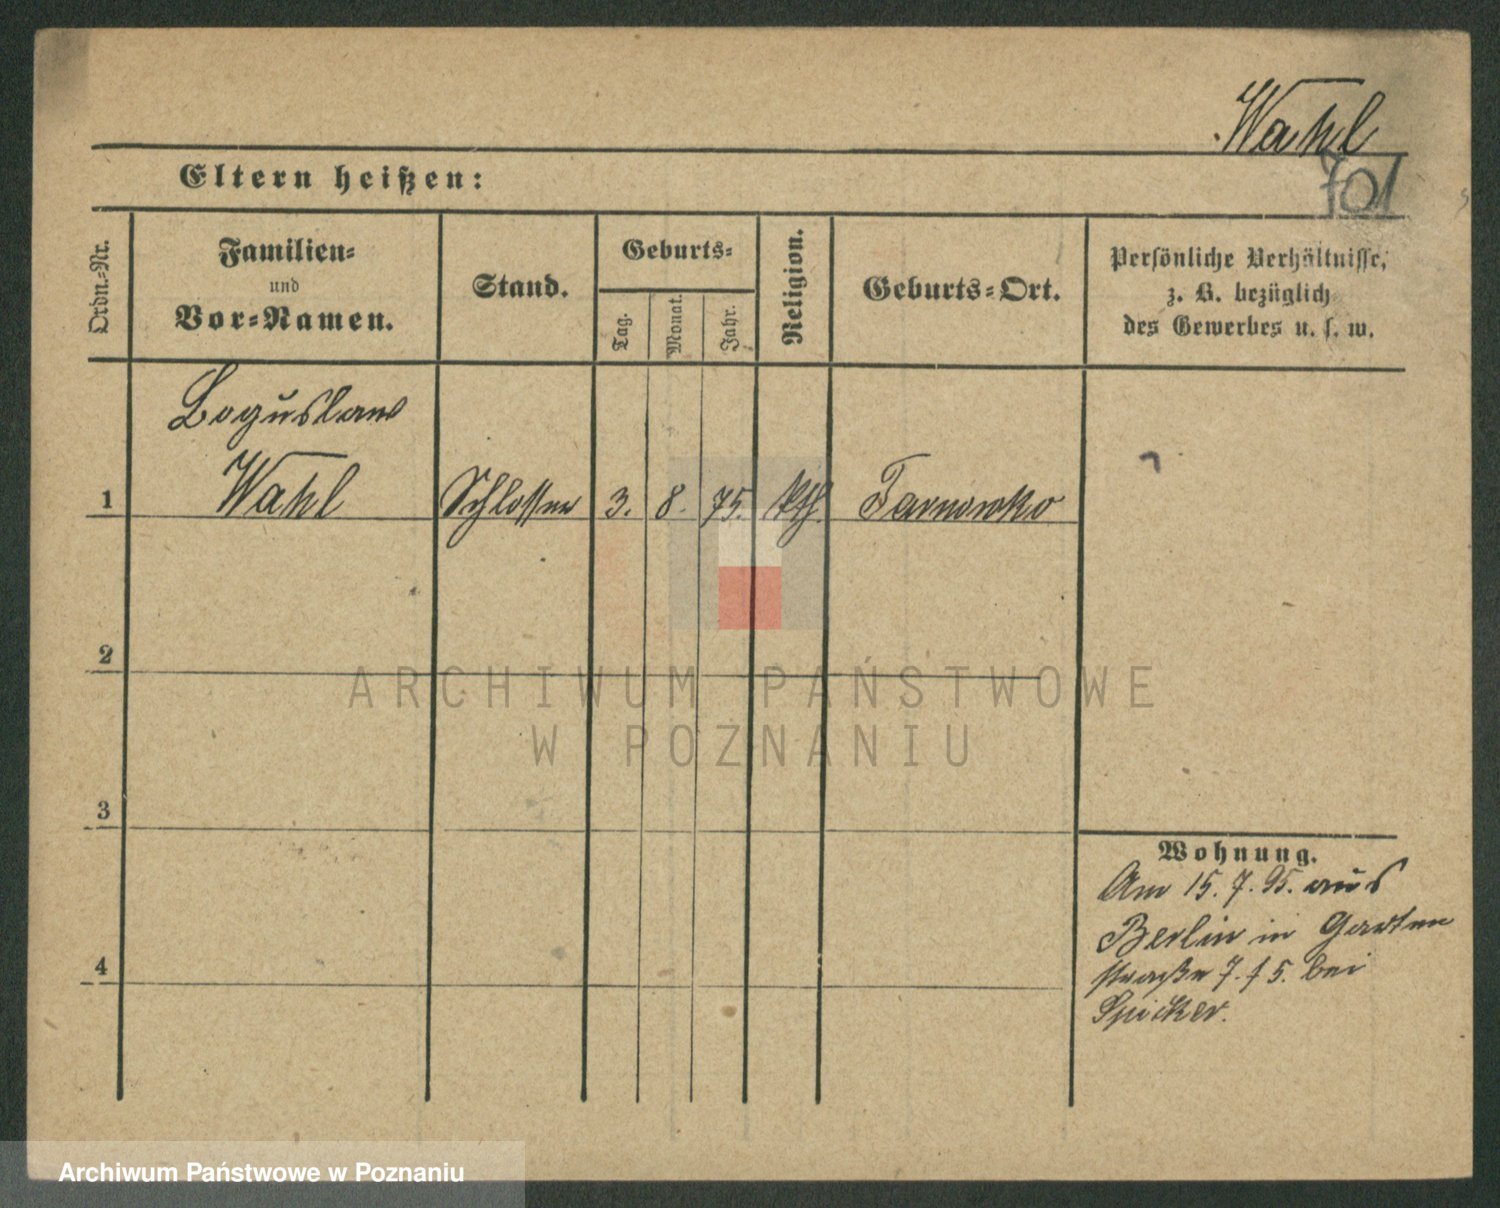 Wahl
701
Eltern heißen:
Ordn.=Nr.
Familien=
und
Vor=Namen.
Stand.
Geburts=
Tag.
Monat.
Jahr.
Religion.
Geburts=Ort.
Persönliche Verhältnisse,
z. B. bezüglich
des Gewerbes u. s. w.
Boguslaw
1 Wahl Schlosser 3. 8. 75. kth. Tarnowko
2
3
4
Wohnung.
Am 15. 7. 95. aus
Berlin in Garten
straße 7. f 5. bei
Spicker.
ARCHIWUM PAŃSTWOWE
W POZNANIU
Archiwum Państwowe w Poznaniu